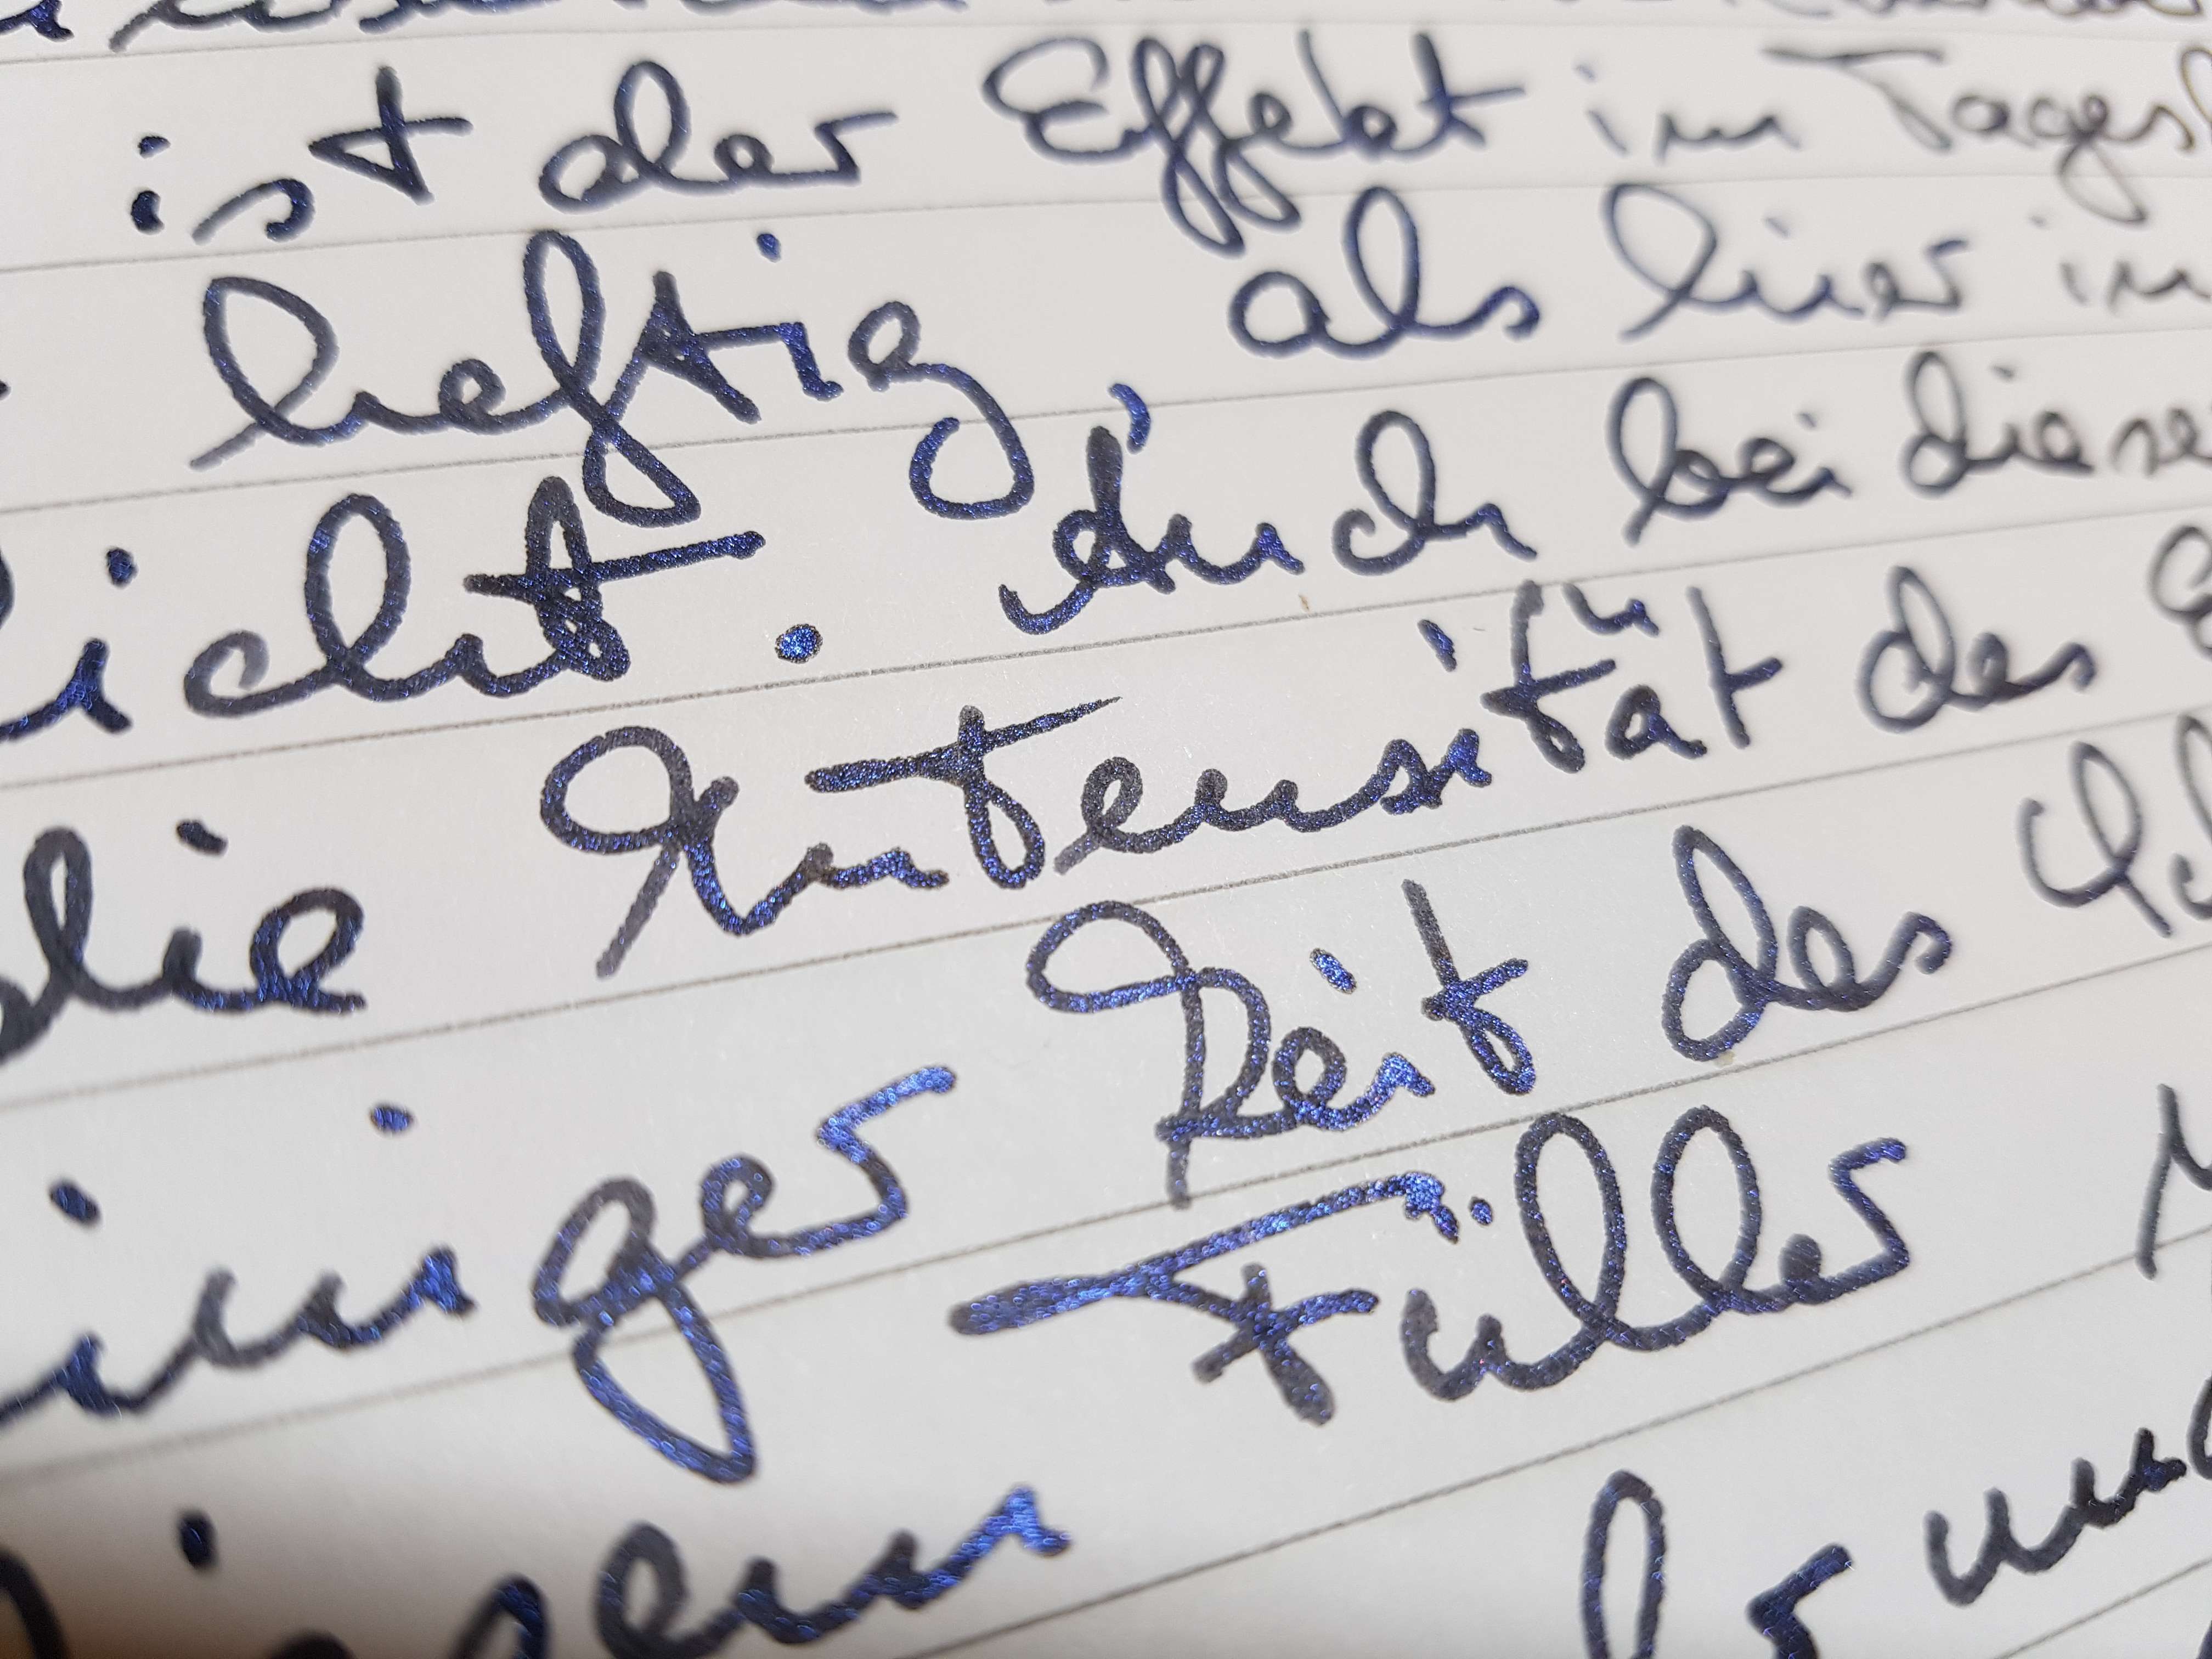 ist der Effekt im Tagesl
heftig, als hier im
licht. Auch bei diese
die Intensität des E
einiger Zeit des
Füller